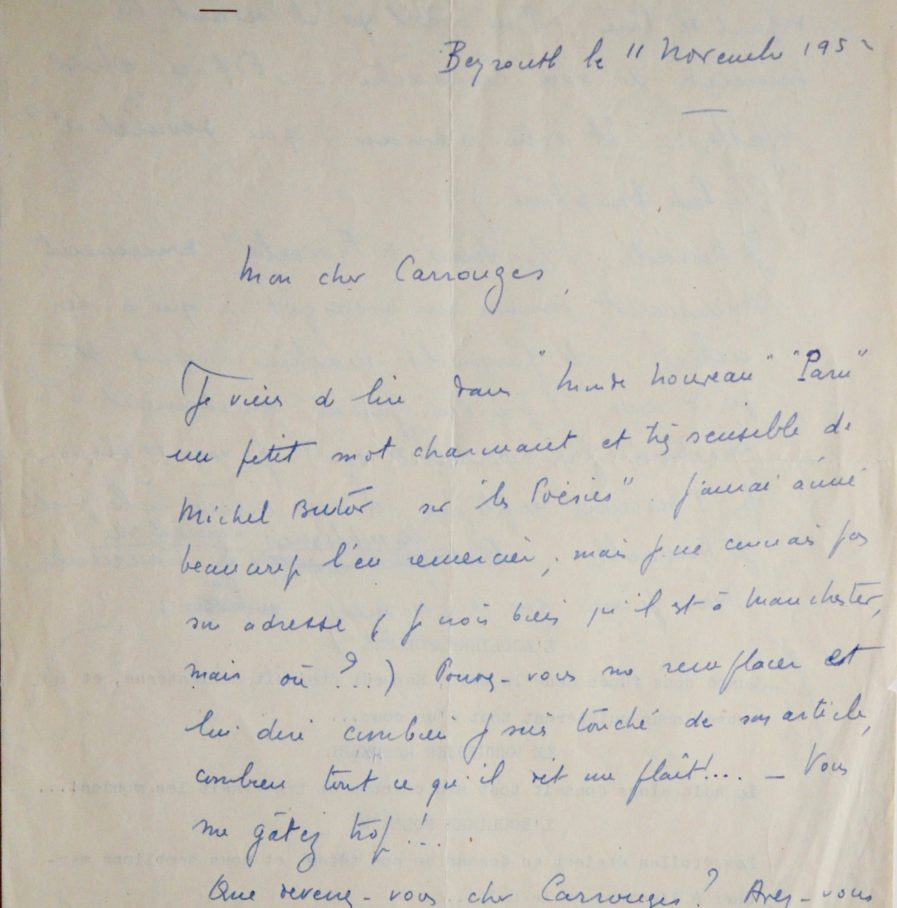 Beyrouth le 11 Novembre 195
Mon cher Carrouges,
Je viens de lire dans "Monde Nouveau" "Paru"
un petit mot charmant et très sensible de
Michel Butor sur "les Poésies". J'aurai aimé
beaucoup l'en remercier, mais je ne connais pas
son adresse (je crois bien qu'il est à Manchester,
mais où?...) Pouvez-vous me remplacer et
lui dire combien je suis touché de son article,
combien tout ce qu'il dit me plaît!... - Vous
me gâtez trop!!
Que devenez-vous cher Carrouges? Avez-vous